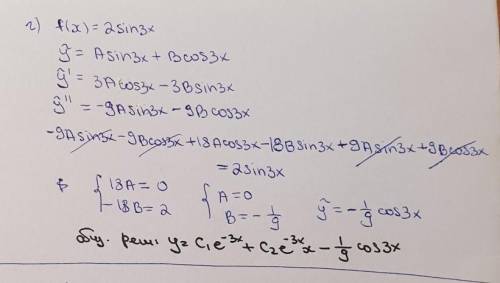 г) f(x) = 2sin3x
ỹ = Asin3x + Bcos3x
ỹ' = 3Acos3x - 3Bsin3x
ỹ'' = -9Asin3x - 9Bcos3x
-9Asin3x - 9Bcos3x + 18Acos3x - 18Bsin3x + 9Asin3x + 9Bcos3x
= 2sin3x
{ 18A = 0 { A = 0 ỹ = -1/9 cos3x
{ -18B = 2 { B = -1/9
общ. реш: y = C₁e^-3x + C₂e^-3x x - 1/9 cos3x